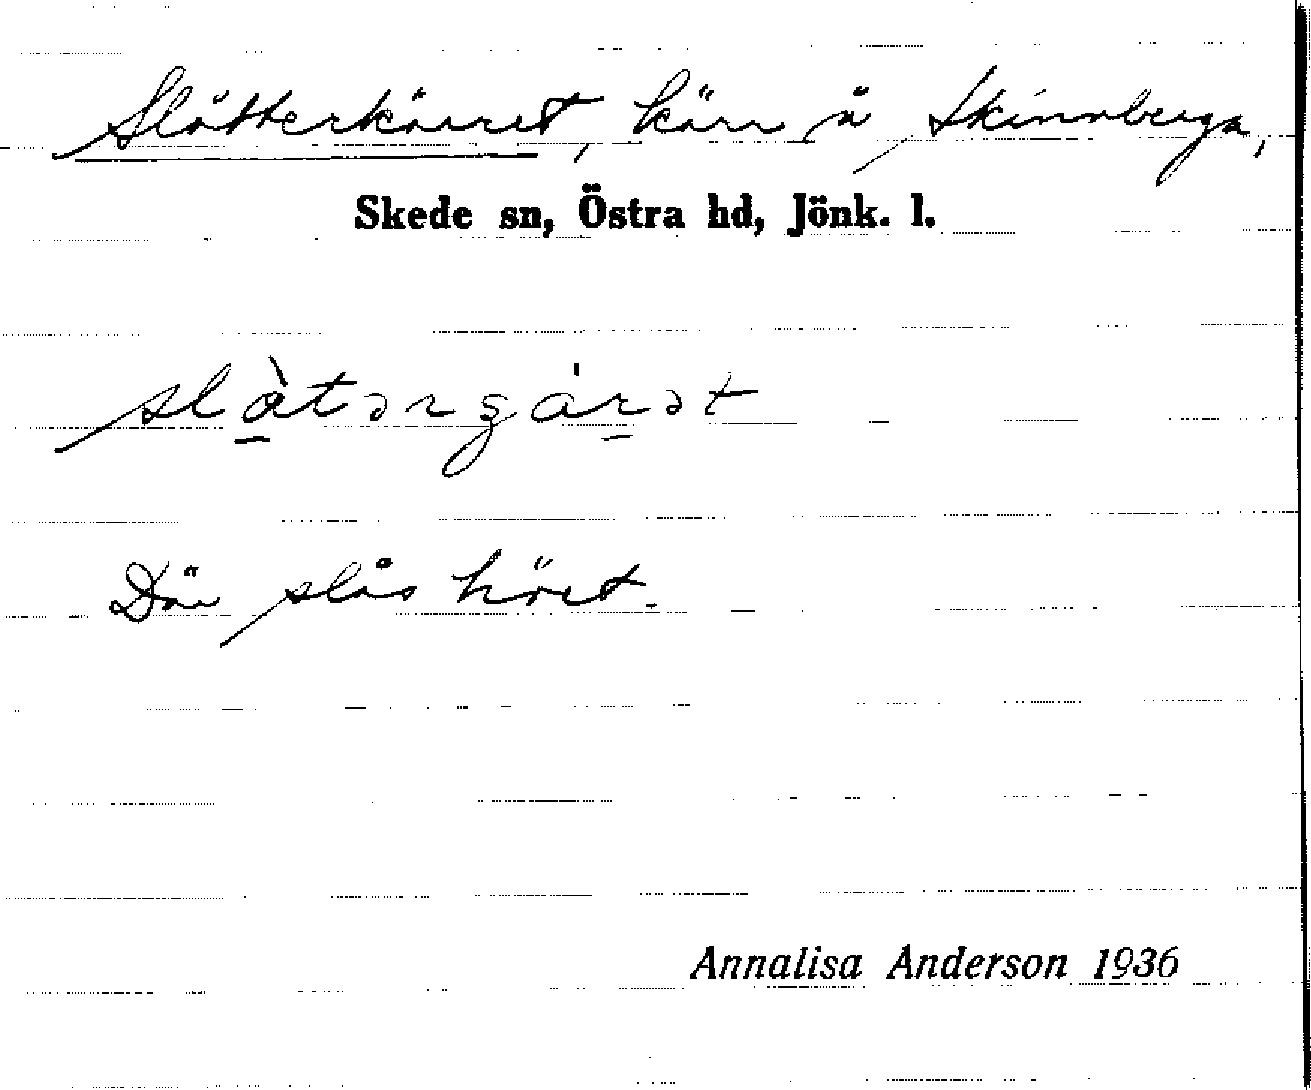 Slåtterkärret, kärr å Skinnberga,
Skede sn, Östra hd, Jönk. l.
Där slås höet.
Annalisa Anderson 1936